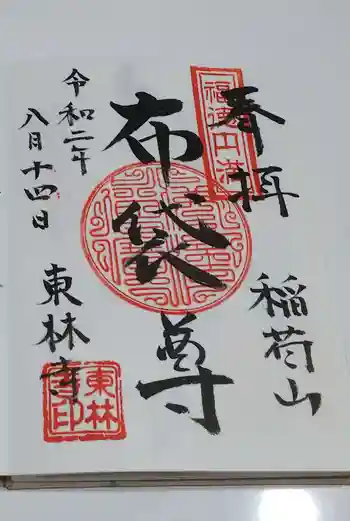 奉拝
福徳円満
稲荷山
布袋尊
令和二年
八月十四日
東林寺
東林寺印